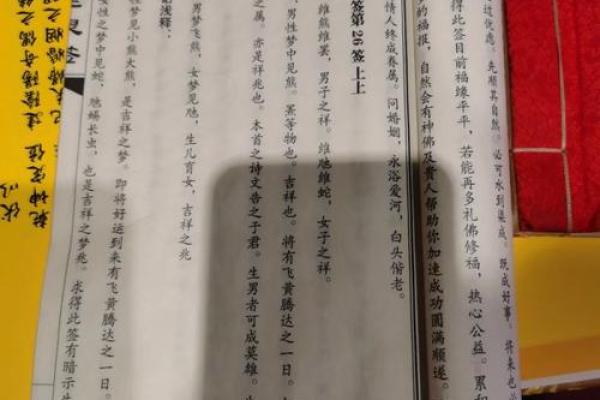 过优患。先顺其自然。必可水到渠成。既成好事。将来也必
得此签目前福缘平平，若能再多礼佛修福，热心公益。累积
的福报，自然会有神佛及贵人帮助你加速成功圆满顺遂。
情人终成眷属。问婚姻，永浴爱河，白头偕老。
签第26签上上
维熊维罴，男子之祥。维虺维蛇，女子之祥。
男性梦中见熊。罴等物也。吉祥也。将有飞黄腾达之一日。
之属。亦是祥兆也。本首之诗文告之于君。生男者可成英雄。
浅释：
男梦飞熊，女梦见虺，生儿育女，吉祥之兆
梦见小熊大熊，是吉祥之梦。即将好运到来有飞黄腾达之一日。
性之梦中见蛇，虺蜴长虫，也是吉祥之梦兆。求得此签有暗示
灵签
建阴阳奇偶之
乾神定位
伏以